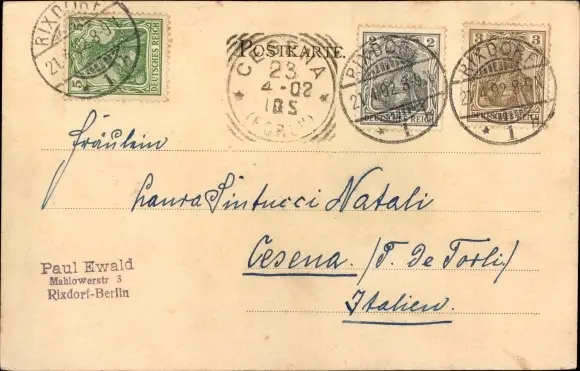 RIXDORF
21.4.02.8-9N.
* 1 h
5
DEUTSCHES REICH
POSTKARTE.
CESENA
23
4-02
10 S
(FORLI)
RIXDORF
* 1
2
DEUTSCHES REICH
RIXDORF
* 1
3
3
DEUTSCHES REICH
Fräulein
Laura Sintucci Natali
Cesena. (P. De Forli)
Italien.
Paul Ewald
Mahlowerstr 3
Rixdorf-Berlin